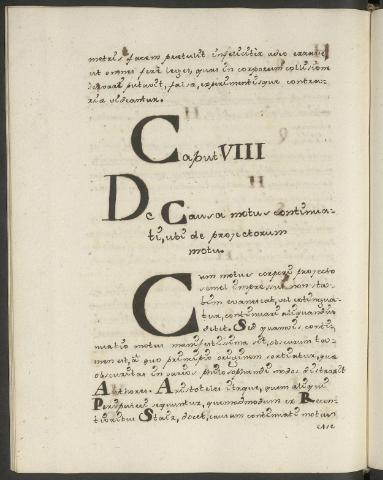 metris facem prætulit infeliciter adeo erravit,
ut omnes ferè leges, quas in corporum collisione
servari putavit, falsæ, experimentisque contra-
riæ videantur.
Caput VIII
De Causa motus continua-
ti, ubi de projectorum
motu.
Cum motus corpori projecto
semel impressus non sta-
tim evanescat, vel extingua-
tur, continuari aliquandiu
debet. Sed quamvis conti-
nuatio motus manifestissima sit, obscurum ta-
men est, à quo principio originem sortiatur, quæ
obscuritas in varios philosophandi modos distraxit
Authores. Aristoteles itaque, quem aliqui
Peripatetici sequuntur, quemadmodum ex Recen-
tioribus Stair, docet, causam continuati motus
esse